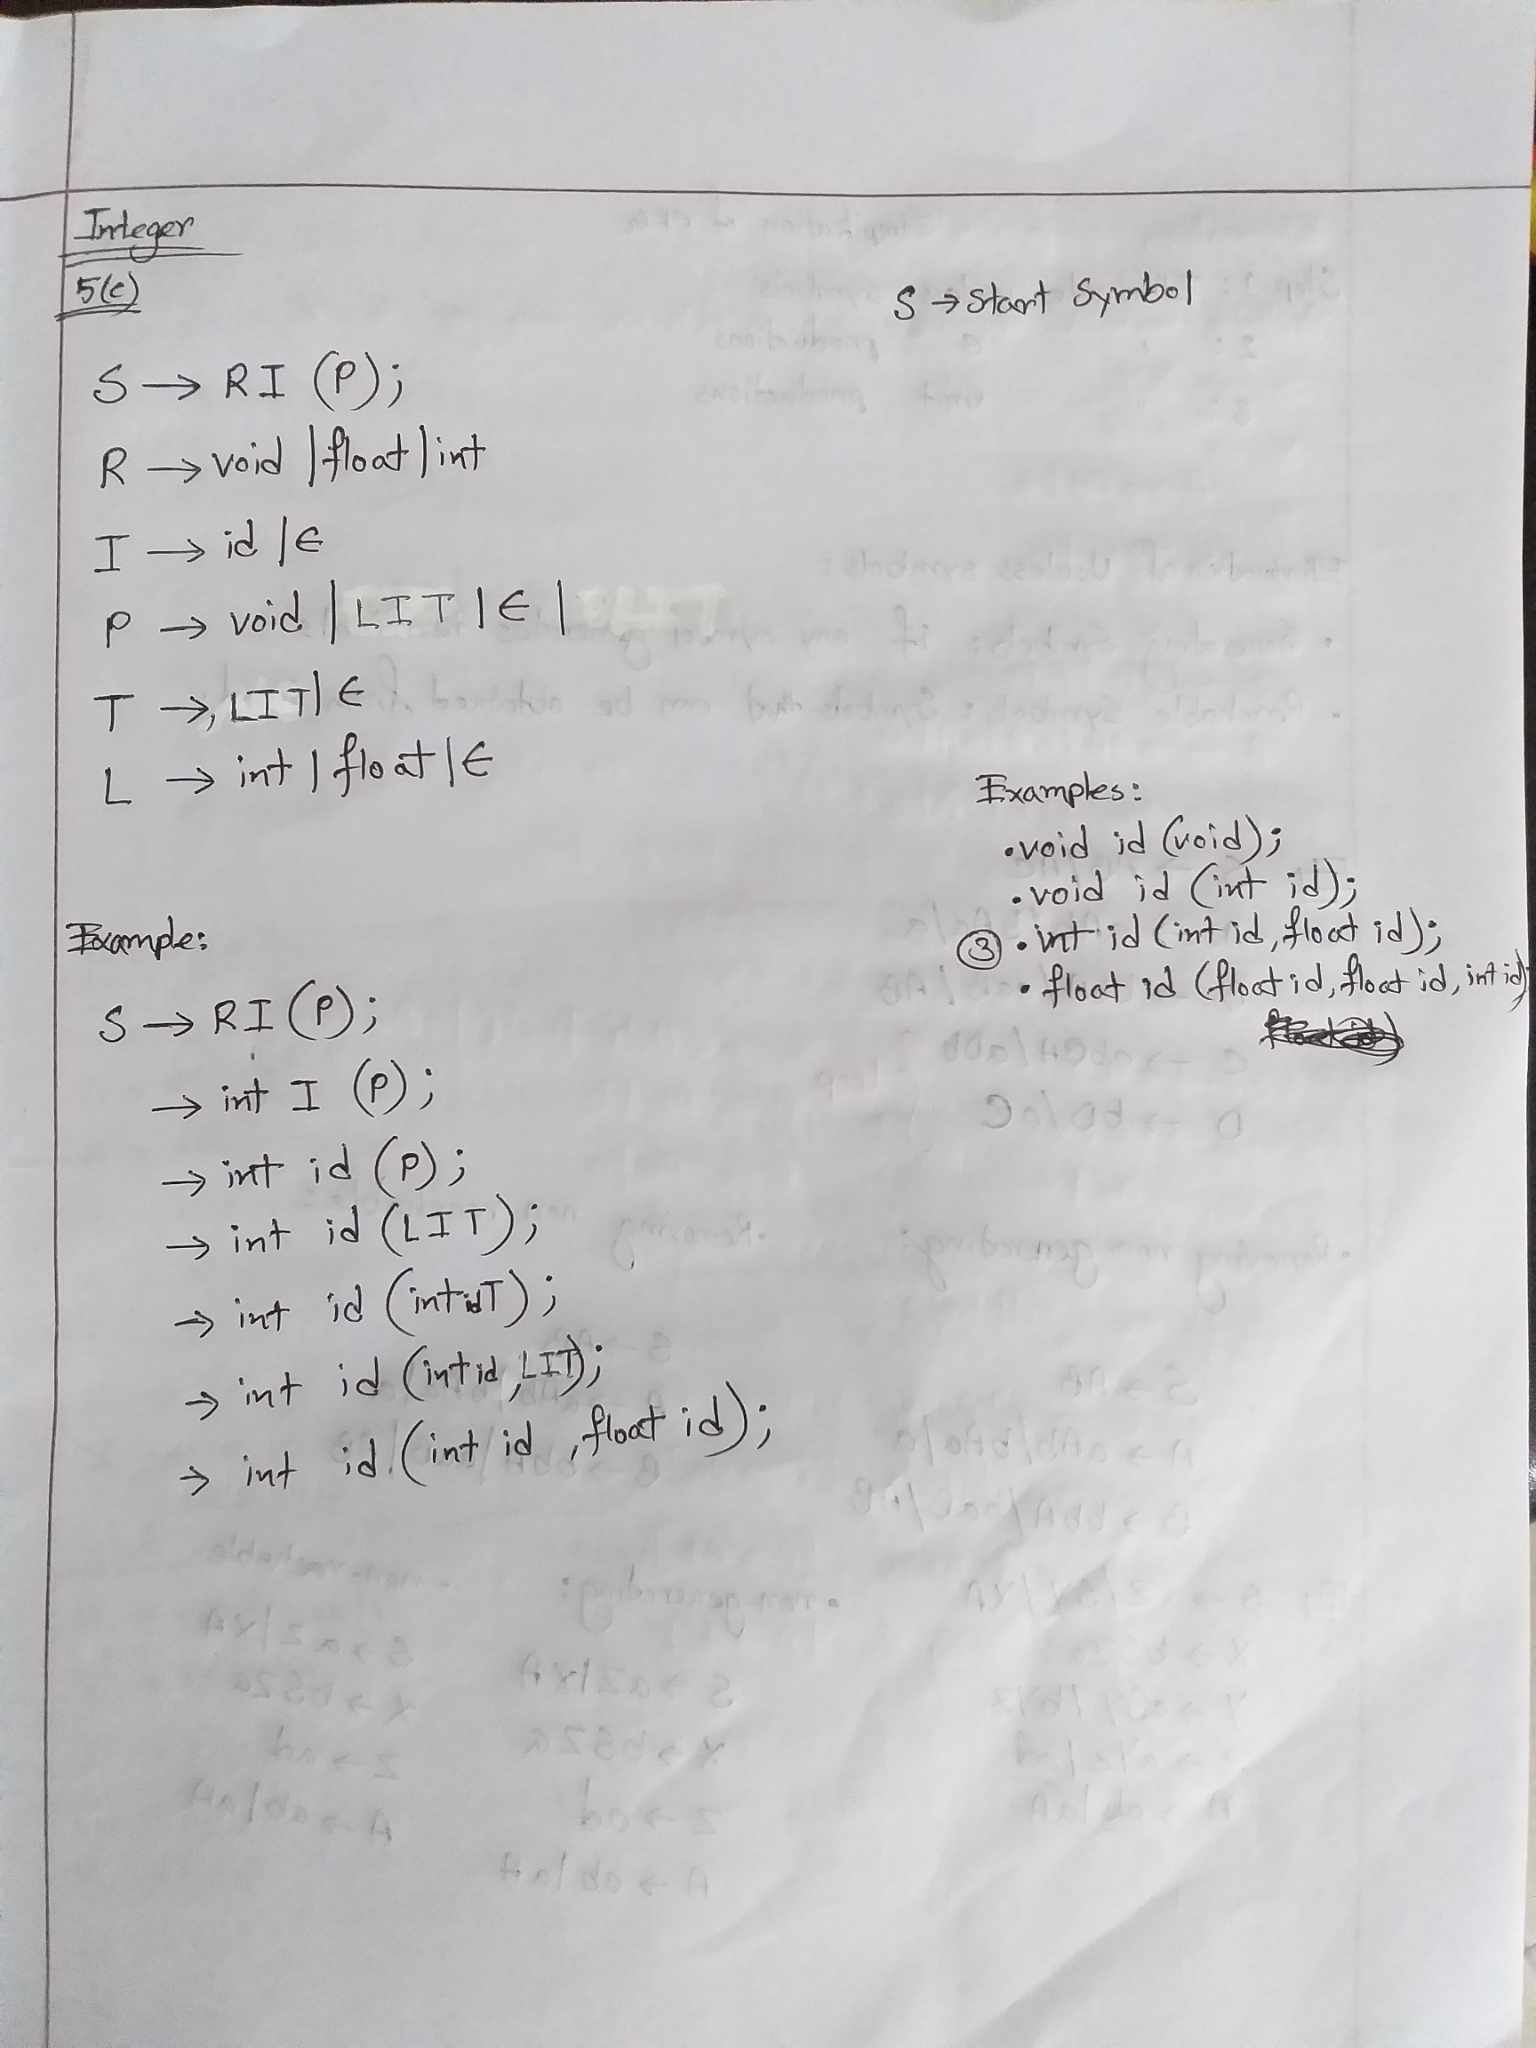 Integer
5(c)
S → Start Symbol
S → RI (P);
R → void | float | int
I → id | ∈
P → void | LIT | ∈ |
T → , LIT | ∈
L → int | float | ∈
Examples:
• void id (void);
• void id (int id);
③ • int id (int id, float id);
• float id (float id, float id, int id)
Example:
S → RI (P);
→ int I (P);
→ int id (P);
→ int id (LIT);
→ int id (int id T);
→ int id (int id, LIT);
→ int id (int id , float id);